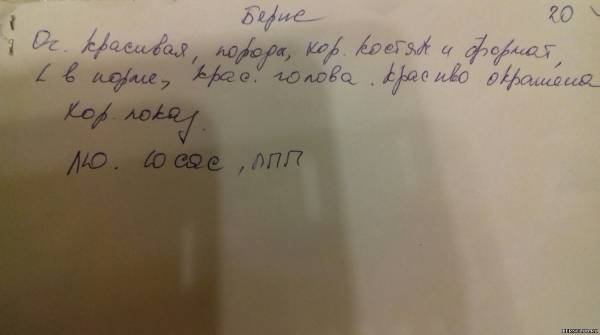 Берис 20
Оч. красивая, порода, хор. костяк и формат,
L в норме, крас. голова. Красиво окрашена
Хор. показ.
ЛЮ. ЮСАС, ЛПП